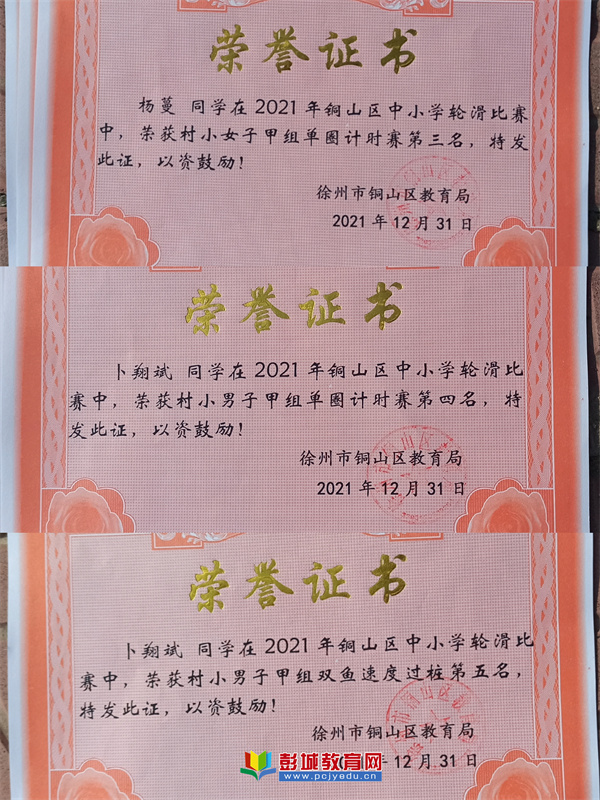 荣誉证书
杨蔓 同学在2021年铜山区中小学轮滑比赛
中，荣获村小女子甲组单圈计时赛第三名，特发
此证，以资鼓励！
徐州市铜山区教育局
2021年12月31日
荣誉证书
卜翔斌 同学在2021年铜山区中小学轮滑比
赛中，荣获村小男子甲组单圈计时赛第四名，特
发此证，以资鼓励！
徐州市铜山区教育局
2021年12月31日
荣誉证书
卜翔斌 同学在2021年铜山区中小学轮滑比
赛中，荣获村小男子甲组双鱼速度过桩第五名，
特发此证，以资鼓励！
徐州市铜山区教育局
年12月31日
彭城教育网
www.pcjyedu.cn